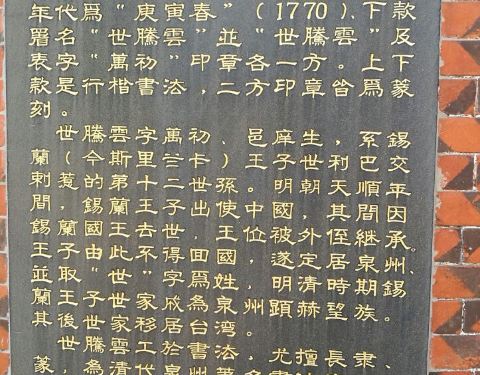 年代爲“庚寅春”(1770)、下款
署名“世騰雲”並“世騰雲”及
表字“萬初”印章各一方。上下
款是行楷法書,二方印章皆爲篆
刻。
世騰雲字萬初、邑庠生,系錫
蘭(今斯里蘭卡)王子世利巴交
剌惹的第十三世孫。明朝天順年
間,錫蘭王子世出使中國,其間因
錫蘭國王去世,王位被外侄繼承
王子由此不得回國,遂定居泉州。
並取“世”字為姓,明清時期、錫
蘭王子世家改居為泉州顯赫望族。
其後世家移居台灣。
世騰雲工於書法,尤擅長隸、
篆,為清代泉州